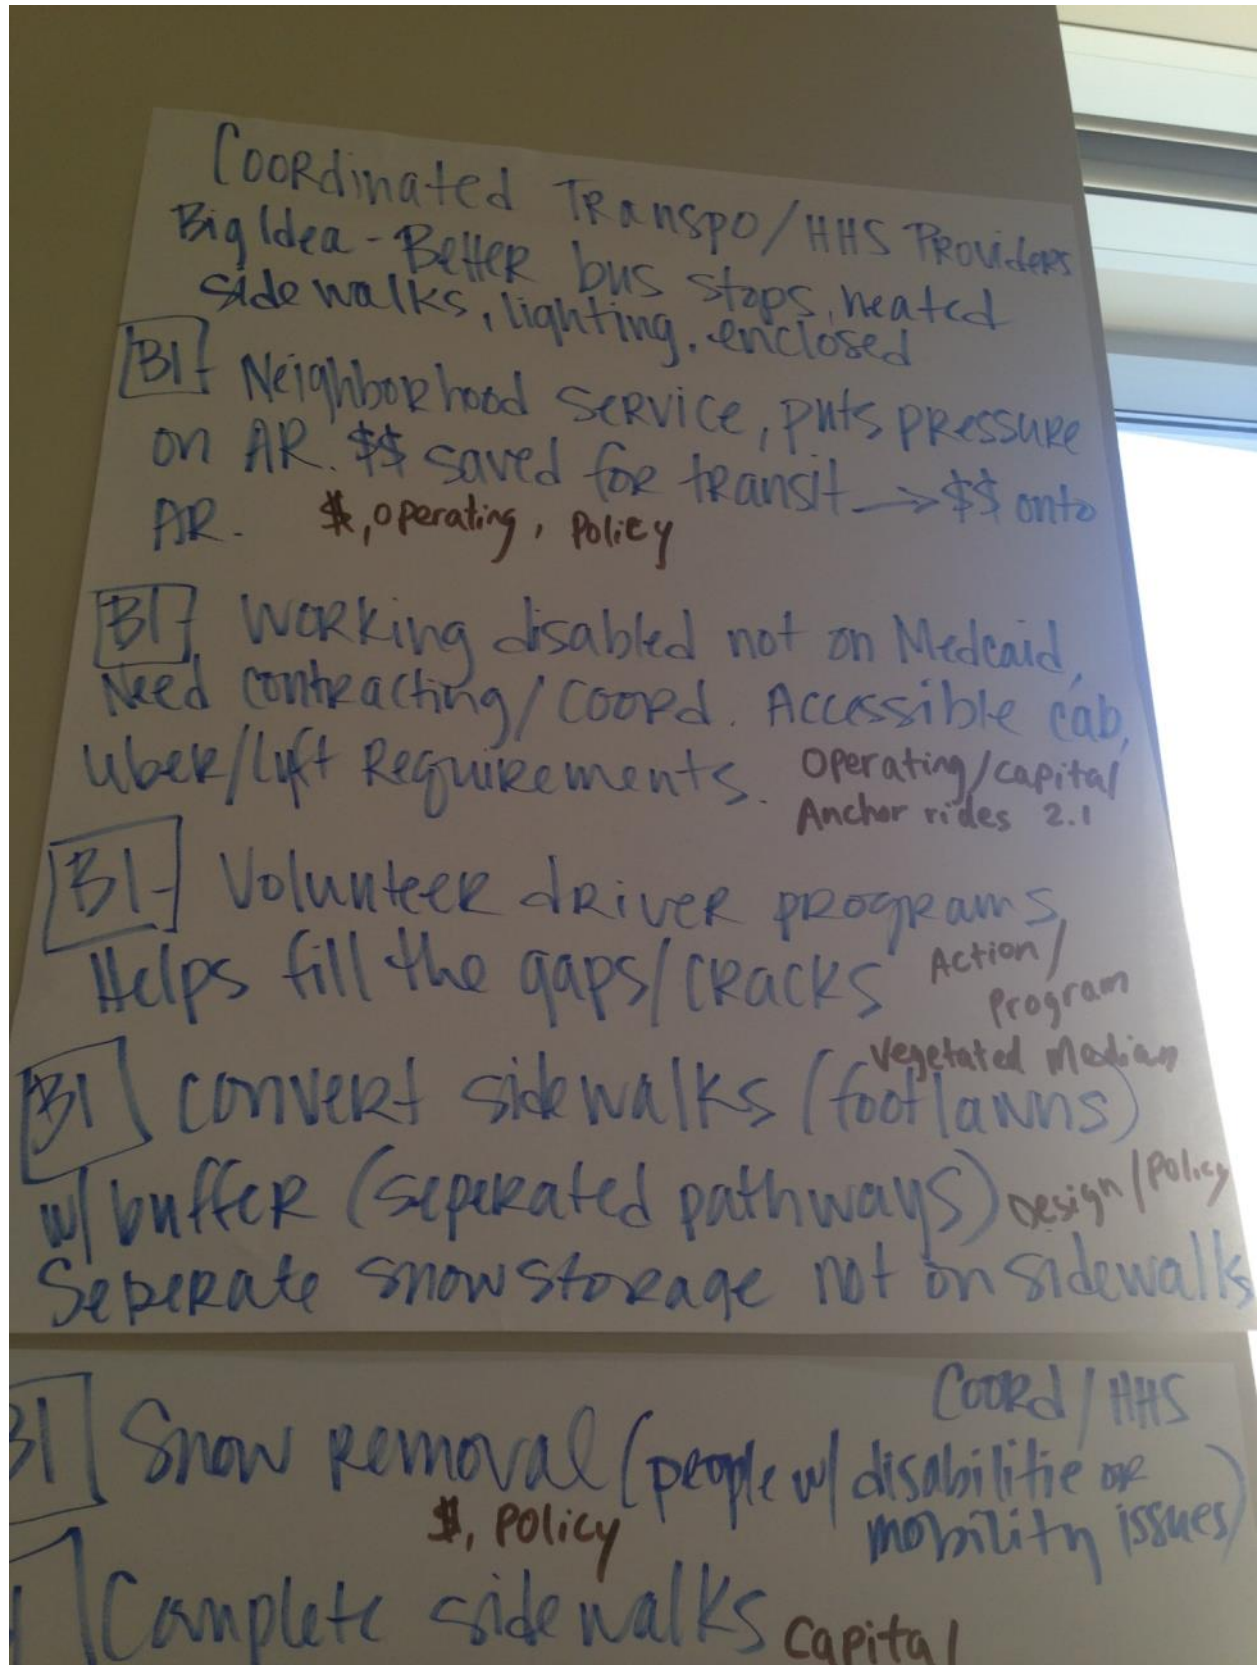 Coordinated Transpo/HHS Providers
Big Idea - Better bus stops, heated
side walks, lighting, enclosed
BI- Neighborhood service, puts pressure
on AR. $$ saved for transit → $$ onto
AR. $, operating, Policy
BI- Working disabled not on Medcaid,
Need contracting/Coord. Accessible cab,
Uber/Lyft Requirements. Operating/capital
Anchor rides 2.1
BI- Volunteer driver programs,
Helps fill the gaps/cracks Action/
Program
Vegetated Median
BI convert sidewalks (footlawns)
w/ buffer (seperated pathways) Design/Policy
Seperate snow storage not on sidewalks
Coord/HHS
BI Snow removal (people w/ disabilitie or
mobility issues)
$, Policy
Complete sidewalks Capital